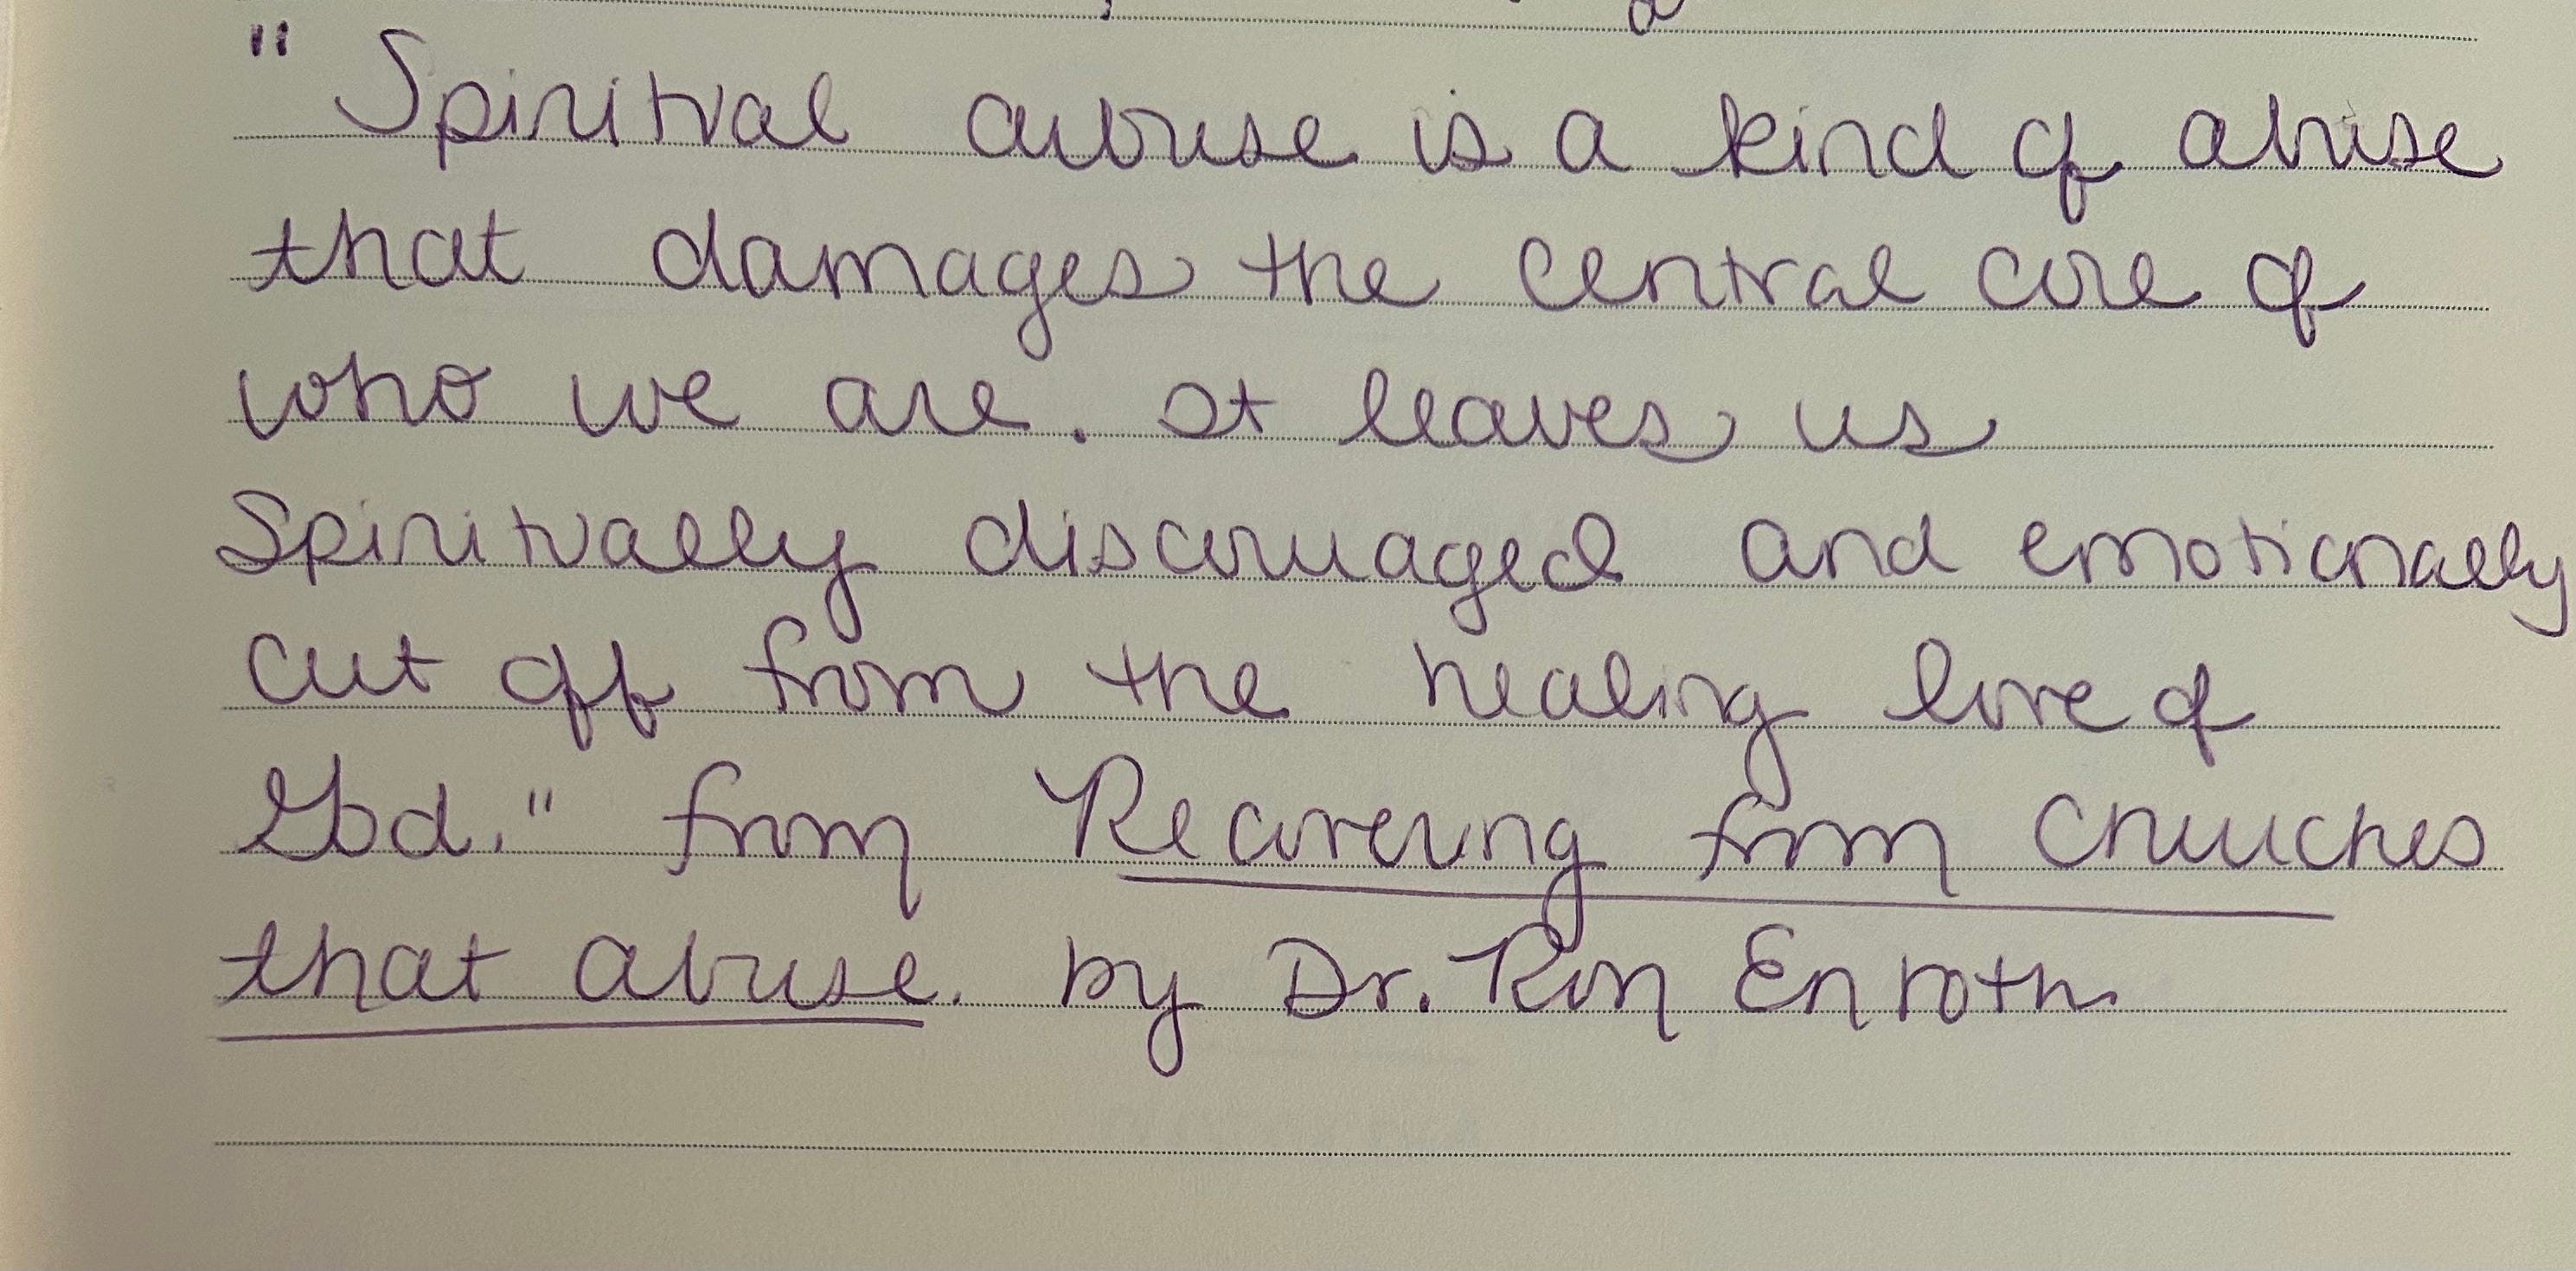 "Spiritual abuse is a kind of abuse
that damages the central core of
who we are. It leaves us
Spiritually discouraged and emotionally
cut off from the healing love of
God." from Recovering from Churches
that abuse. by Dr. Ron Enroth